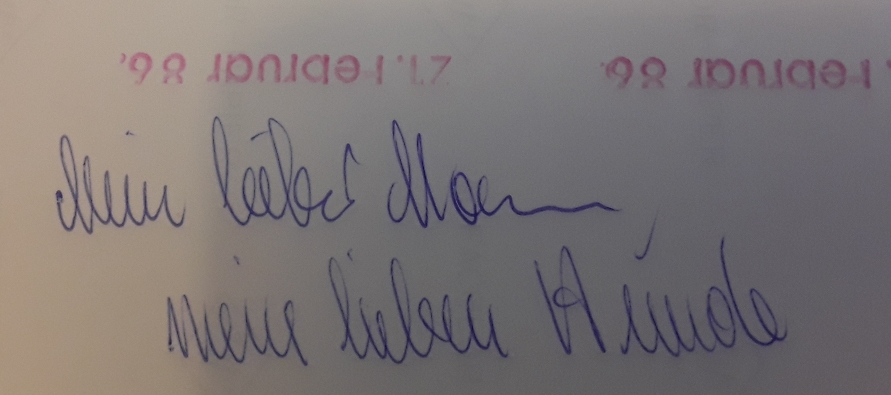 27. Februar 86. Februar 86.
Mein lieber Mann
meine lieben Hunde